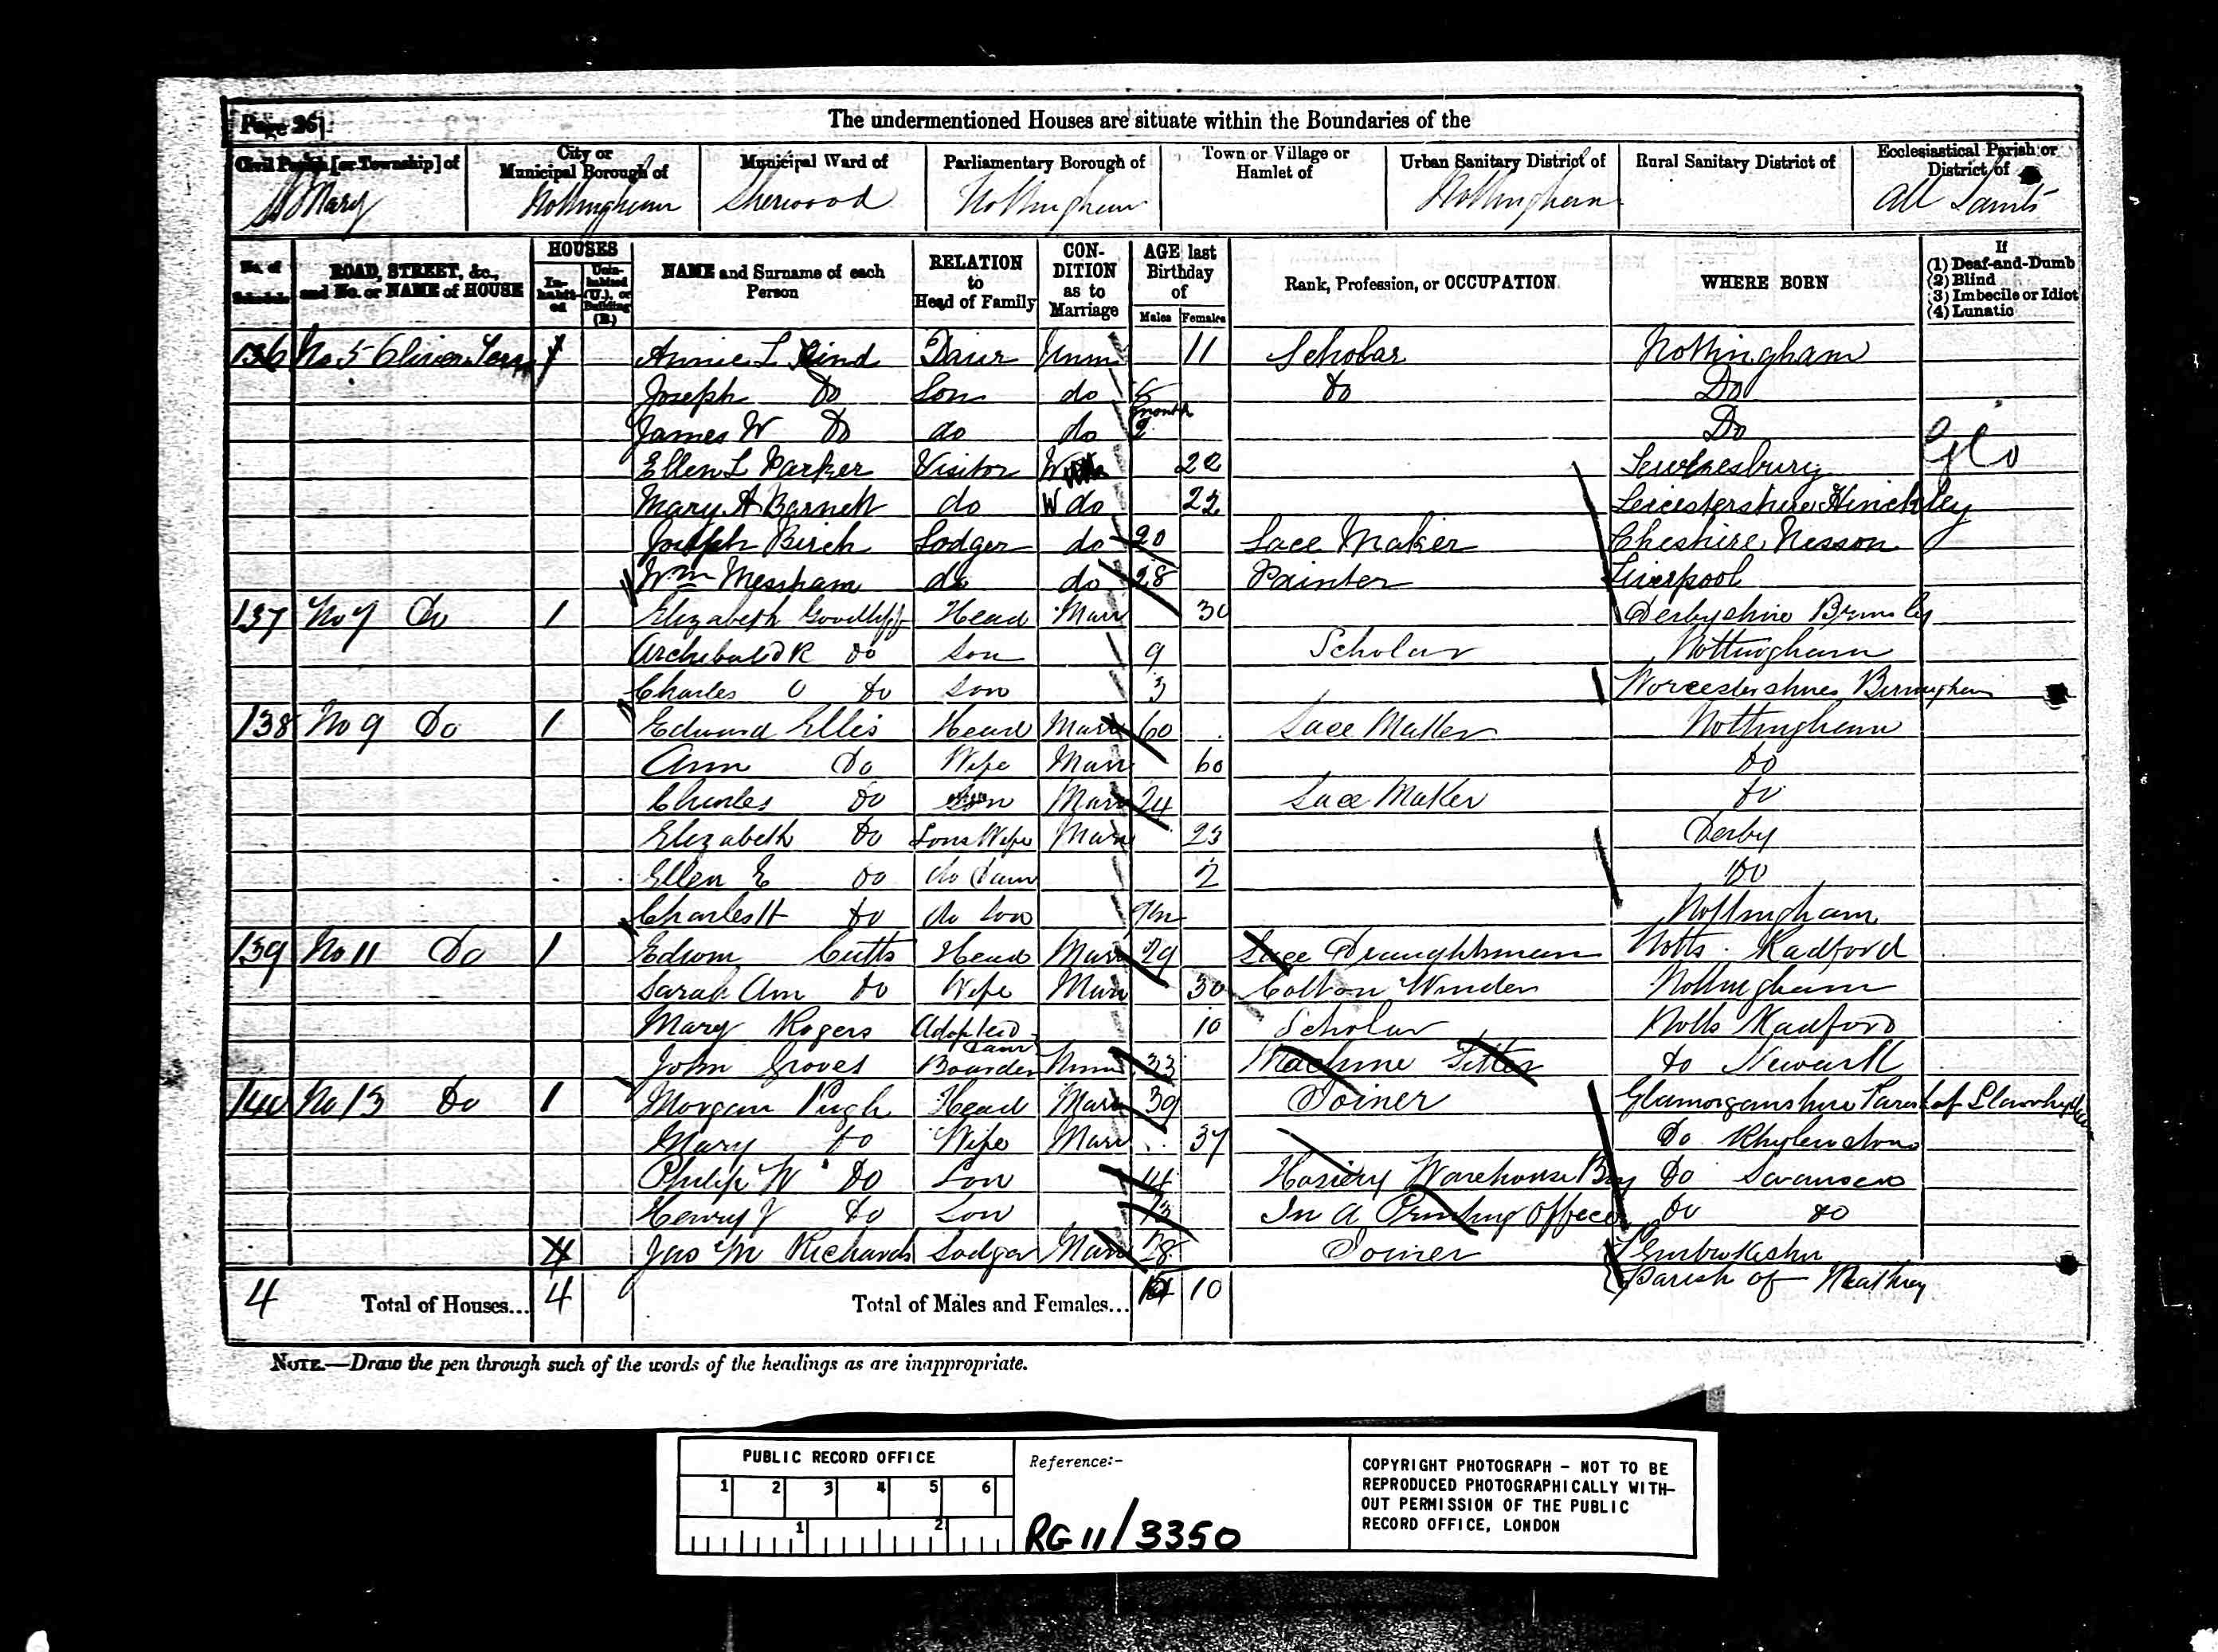 Page 26
The undermentioned Houses are situate within the Boundaries of the
Civil Parish [or Township] of
City or Municipal Borough of
Municipal Ward of
Parliamentary Borough of
Town or Village or Hamlet of
Urban Sanitary District of
Rural Sanitary District of
Ecclesiastical Parish or District of
St Mary Nottingham Sherwood Nottingham Nottingham All Saints
No. of Schedule
ROAD, STREET, &c., and No. or NAME of HOUSE
HOUSES
In-habit-ed
Unin-habited (U.), or Building (B.)
NAME and Surname of each Person
RELATION to Head of Family
CON-DITION as to Marriage
AGE last Birthday of
Males Females
Rank, Profession, or OCCUPATION
WHERE BORN
If
(1) Deaf-and-Dumb
(2) Blind
(3) Imbecile or Idiot
(4) Lunatic
136 No 5 Annie L Daur Unm 11 Scholar Nottingham
Joseph Do Son do 5 Do Do
James W Do do do 2 month Do
Ellen L Parker Visitor 22 Glo
Mary A Barnett do W do 22 Leicestershire Hinckley
Joseph Birch Lodger do 20 Lace Maker Cheshire Nesson
Wm Messham do do 28 Painter Liverpool
137 No 7 Do 1 Elizabeth Head Marr 30 Derbyshire
Archibald R Do Son 9 Scholar Nottingham
Charles O Do Son 3 Worcestershire Birmingham
138 No 9 Do 1 Edward Ellis Head Marr 60 Lace Maker Nottingham
Ann Do Wife Marr 60 Do
Charles Do Son Marr 24 Lace Maker Do
Elizabeth Do Sons Wife Marr 23 Derby
Ellen E Do do Daur 2 Do
Charles H Do do Son 9m Nottingham
139 No 11 Do 1 Edwin Cutts Head Marr 29 Lace Draughtsman Notts Radford
Sarah Ann Do Wife Marr 30 Cotton Winder Nottingham
Mary Rogers Adopted Daur 10 Scholar Notts Radford
John Groves Boarder Unm 33 Machine Fitter Do Newark
140 No 13 Do 1 Morgan Pugh Head Marr 39 Joiner Glamorganshire Parish of
Mary Do Wife Marr 37 Do
Philip W Do Son 14 Hosiery Warehouse Boy Do Swansea
Henry J Do Son 13 In a Printing Office Do Do
4 Jno M Richards Lodger Marr 28 Joiner Pembrokeshire
Parish of
4 Total of Houses... 4 Total of Males and Females... 14 10
NOTE.—Draw the pen through such of the words of the headings as are inappropriate.
PUBLIC RECORD OFFICE
1 2 3 4 5 6
1 2
Reference:-
RG 11/3350
COPYRIGHT PHOTOGRAPH - NOT TO BE
REPRODUCED PHOTOGRAPHICALLY WITH-
OUT PERMISSION OF THE PUBLIC
RECORD OFFICE, LONDON